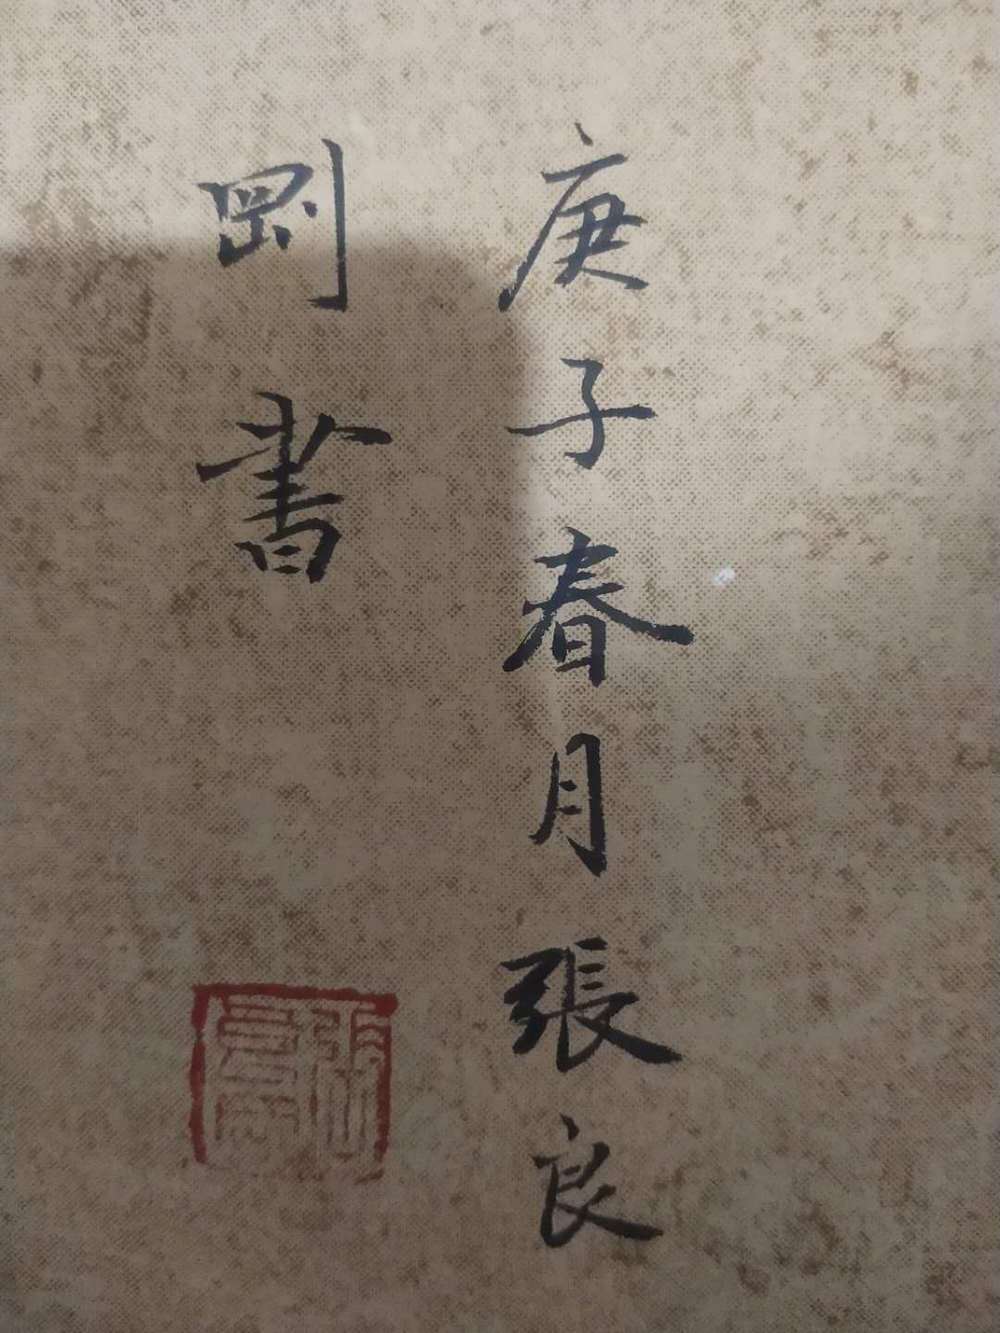 庚子春月張良
剛書